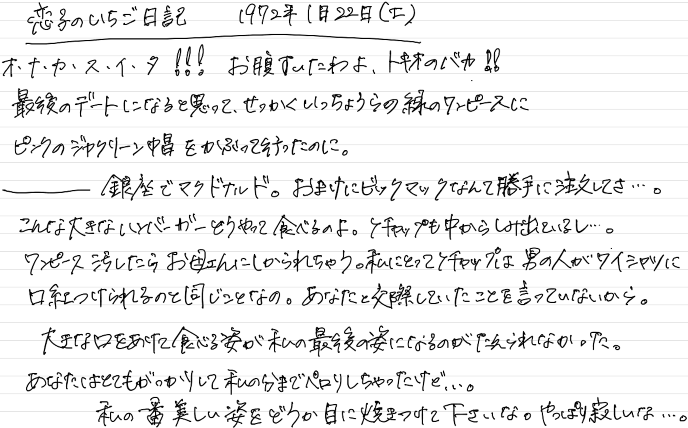 恋子のいちご日記　1972年1月22日(土)
オ・ナ・カ・ス・イ・タ!!! お腹すいたわよ、トキオのバカ!!
最後のデートになると思って、せっかくいっちょうらの緑のワンピースに
ピンクのジャクリーン帽をかぶって行ったのに。
――― 銀座でマクドナルド。おまけにビックマックなんて勝手に注文してさ…。
こんな大きなハンバーガーどうやって食べるのよ。ケチャップも中からしみ出ているし…。
ワンピース汚したらお母さんにしかられちゃう。私にとってケチャップは男の人がワイシャツに
口紅つけられるのと同じことなの。あなたと交際していたことを言っていないから。
大きな口をあけて食べる姿が私の最後の姿になるのがたえられなかった。
あなたはとてもがっかりして私の分までペロリしちゃったけど…。
私の一番美しい姿をどうか目に焼きつけて下さいな。やっぱり寂しいな…。